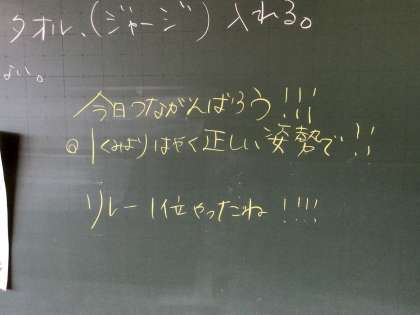 タオル、(ジャージ)入れる。
ない。
今日つながんばろう!!!
◎1くみよりはやく正しい姿勢で!!
リレー1位やったね!!!!